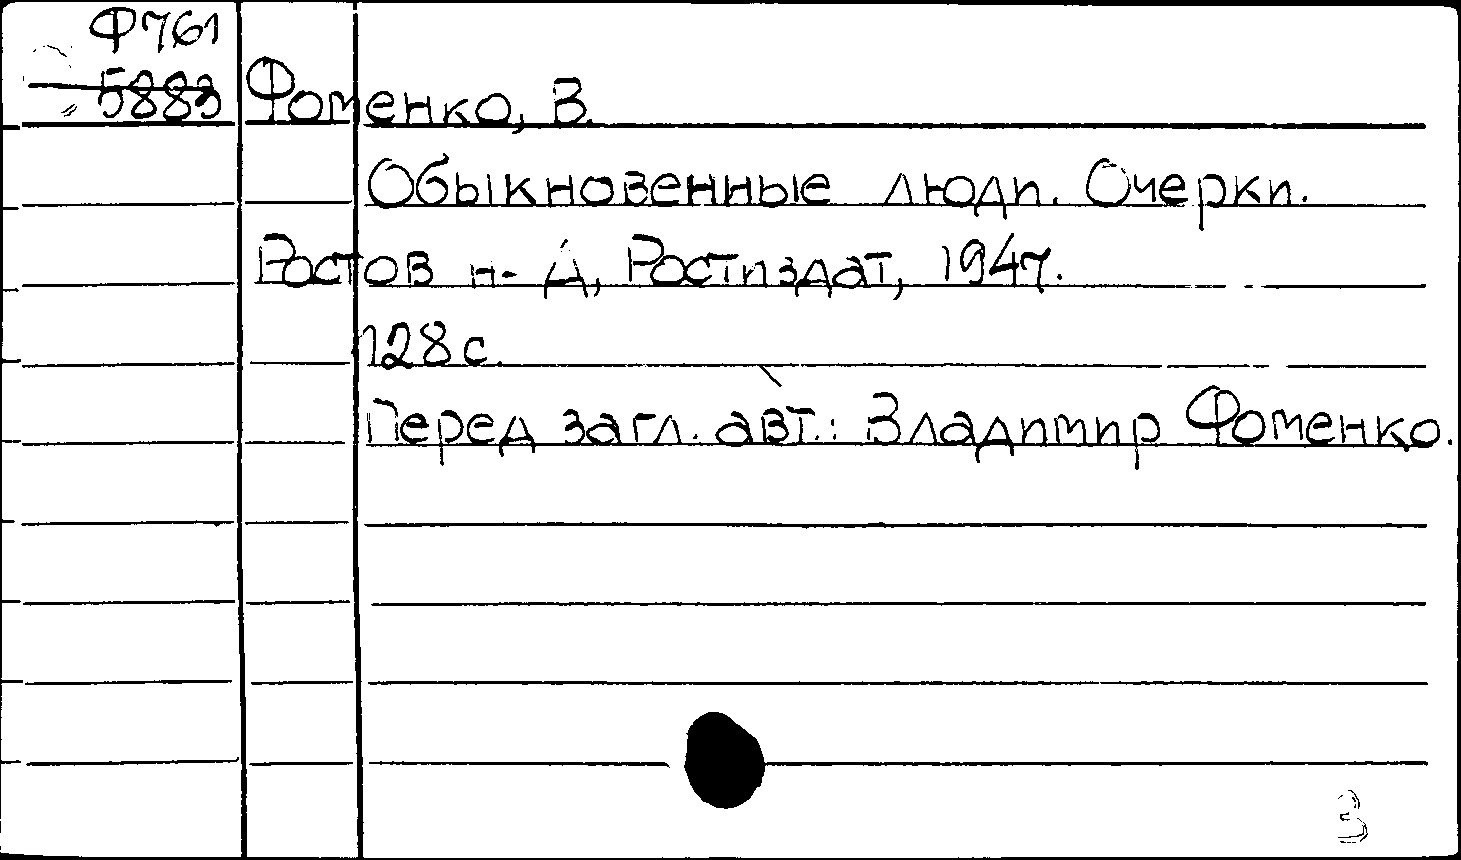 Ф761
5883
Фоменко, В.
Обыкновенные люди. Очерки.
Ростов н-Д, Ростиздат, 1947.
128 с.
Перед загл. авт.: Владимир Фоменко.
3